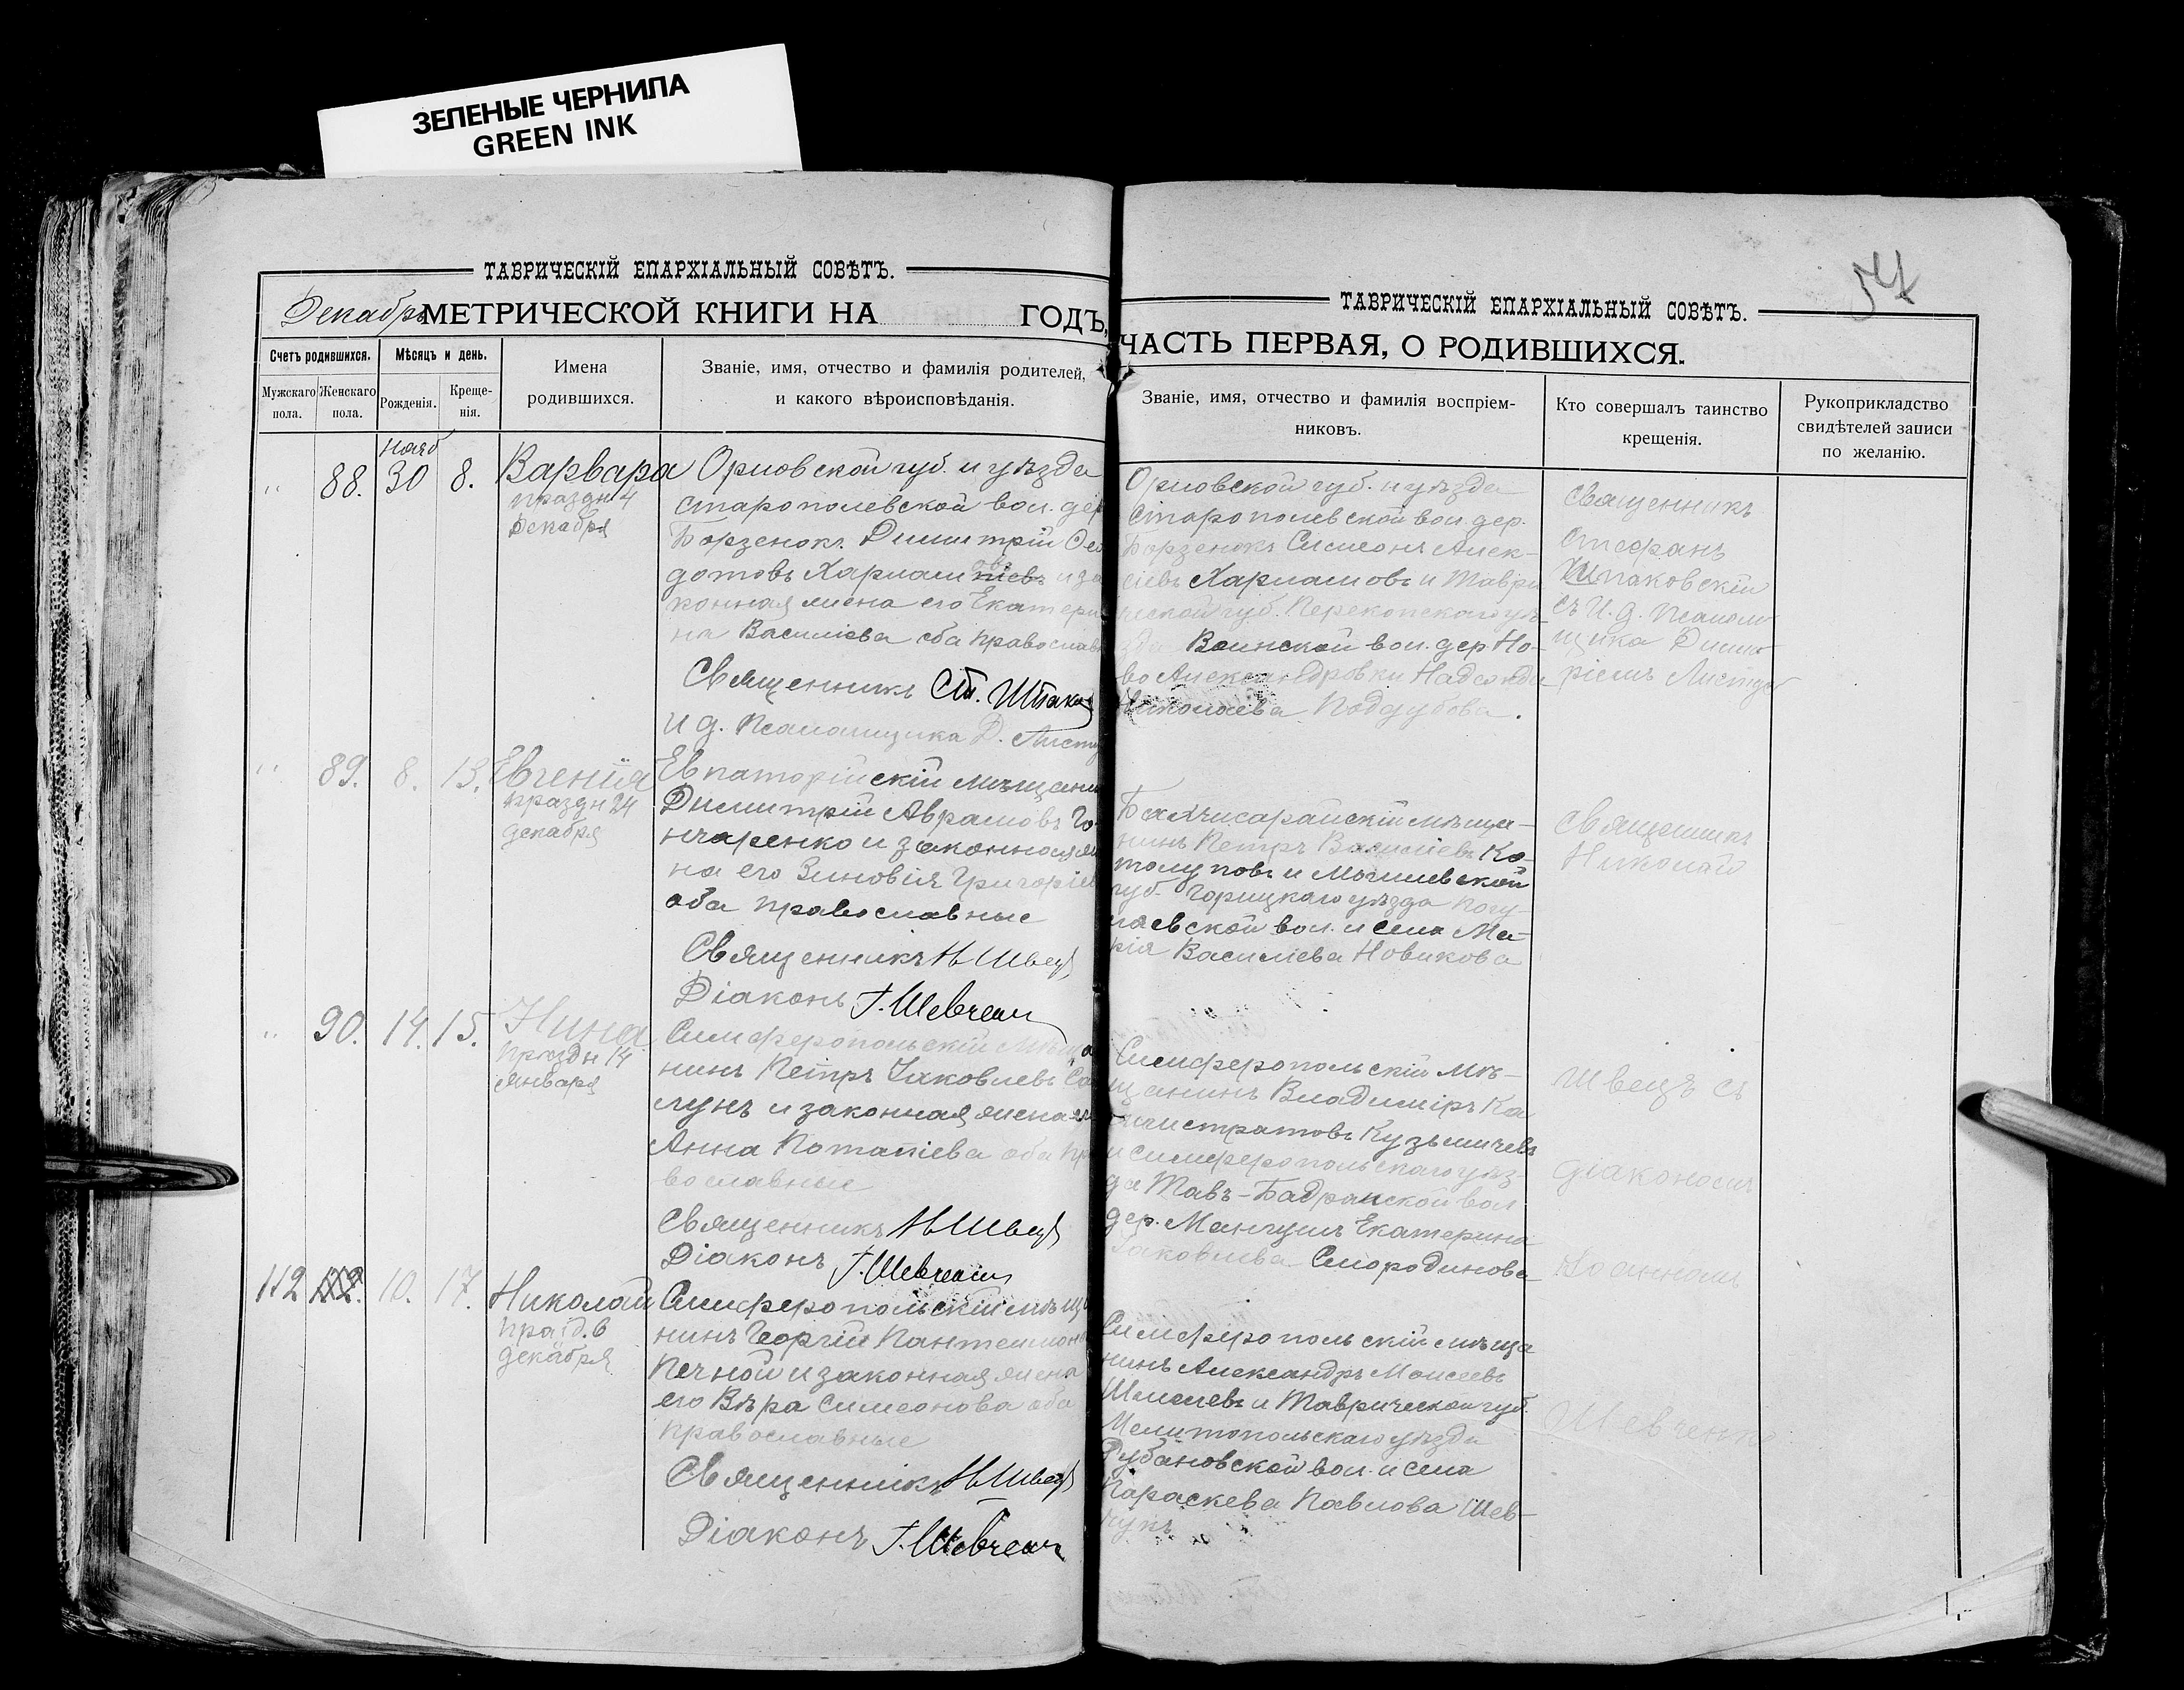 ЗЕЛЕНЫЕ ЧЕРНИЛА
GREEN INK
ТАВРИЧЕСКІЙ ЕПАРХІАЛЬНЫЙ СОВѢТЪ.
Декабрь МЕТРИЧЕСКОЙ КНИГИ НА ГОДЪ,
Счетъ родившихся.
Мужскаго пола.
Женскаго пола.
Мѣсяцъ и день.
Рожденія.
Креще-
нія.
Имена
родившихся.
Званіе, имя, отчество и фамилія родителей,
и какого вѣроисповѣданія.
" 88. нояб 30 8. Варвара
праздн 4
декабря
Орловской губ. и уѣзда
старополевской вол. дер
Борзенокъ Димитрій Ѳео
дотовъ Харлам овъ и за
конная жена его Екатери
на Василіева оба правослaв
Священникъ Ст. Шпаков
И д. Псаломщика Д. Листу
" 89. 8. 13. Евгенія
праздн 24
декабря
Евпаторійскій мѣщани
Димитрій Аврамовъ Го-
нчаренко и законная же
на его Зиновія Григоріев
оба православные
Священникъ Н Швецъ
Діаконъ І. Шевченко
" 90. 14. 15. Нина
праздн 14
января
Симферопольскій мѣща
нинъ Петръ Іаковлевъ
лунъ и законная жена его
Анна Потапіева оба пра
вославные
Священникъ Н Швецъ
Діаконъ І. Шевченко
112 10. 17. Николай
празд. 6
декабря
Симферопольскій мѣща
нинъ Георгій Пантелимон
Печной и законная жена
его Вѣра Симеонова оба
православные
Священникъ Н Швецъ
Діаконъ І. Шевченко
57
ТАВРИЧЕСКІЙ ЕПАРХІАЛЬНЫЙ СОВѢТЪ.
ЧАСТЬ ПЕРВАЯ, О РОДИВШИХСЯ.
Званіе, имя, отчество и фамилія воспріем-
никовъ.
Кто совершалъ таинство
крещенія.
Рукоприкладство
свидѣтелей записи
по желанію.
Орловской губ. и уѣзда
Старополевской вол. дер.
Борзенокъ Симеонъ Алек-
сіевъ Харламовъ и Таври
ческой губ. Перекопскаго уѣ-
зда Воинской вол. дер Но-
во Александровки Надежда
Николаева Поддубова.
Священникъ
Стефанъ
Шпаковскій
съ И. д. Псалом
щика Димит
ріемъ Листуб
Бахчисарайскій мѣща-
нинъ Петръ Василіевъ Ко-
толуповъ и Могилевской
губ. Горицкаго уѣзда
лаевской вол. и села Ма-
рія Василіева Новикова
Священникъ
Николай
Симферопольскій мѣ-
щанинъ Владиміръ Ка
листратовъ Кузьмичевъ
и Симферопольскаго уѣз-
да Тавъ-Бадракской вол
дер. Мангушъ Екатерина
Іаковлева Смородинова
Швецъ съ
діакономъ
Іоанномъ
Симферопольскій мѣща
нинъ Александръ Моисеевъ
и Таврической губ.
Мелитопольскаго уѣзда
Рубановской вол. и села
Параскева Павлова Шев-
чукъ
Шевченко